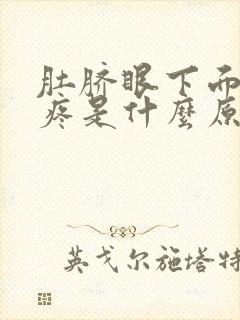 肚脐眼下面
疼是什麼原
英戈尔施塔特